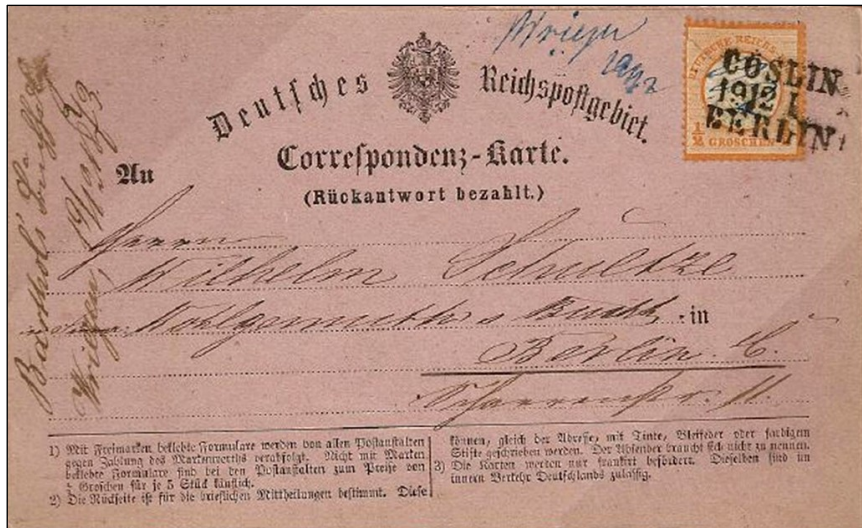 Wriezen
19/12
DEUTSCHE REICHS-POST
1/2 GROSCHEN
CÖSLIN
19 12 I
BERLIN
Deutsches Reichspostgebiet.
Correspondenz-Karte.
(Rückantwort bezahlt.)
An
Herrn
Wilhelm Schultze
Wohlgemuth's -in
Berlin. C.
Scharrenstr. 11.
Wriezen, 19/12 73.
1) Mit Freimarken beklebte Formulare werden von allen Postanstalten
gegen Zahlung des Markenwerths verabfolgt. Nicht mit Marken
beklebte Formulare sind bei den Postanstalten zum Preise von
Groschen für je 5 Stück käuflich.
2) Die Rückseite ist für die brieflichen Mittheilungen bestimmt. Diese
können, gleich der Adresse, mit Tinte, Bleifeder oder farbigem
Stifte geschrieben werden. Der Absender braucht sich nicht zu nennen.
3) Die Karten werden nur frankirt befördert. Dieselben sind im
innern Verkehr Deutschlands zulässig.